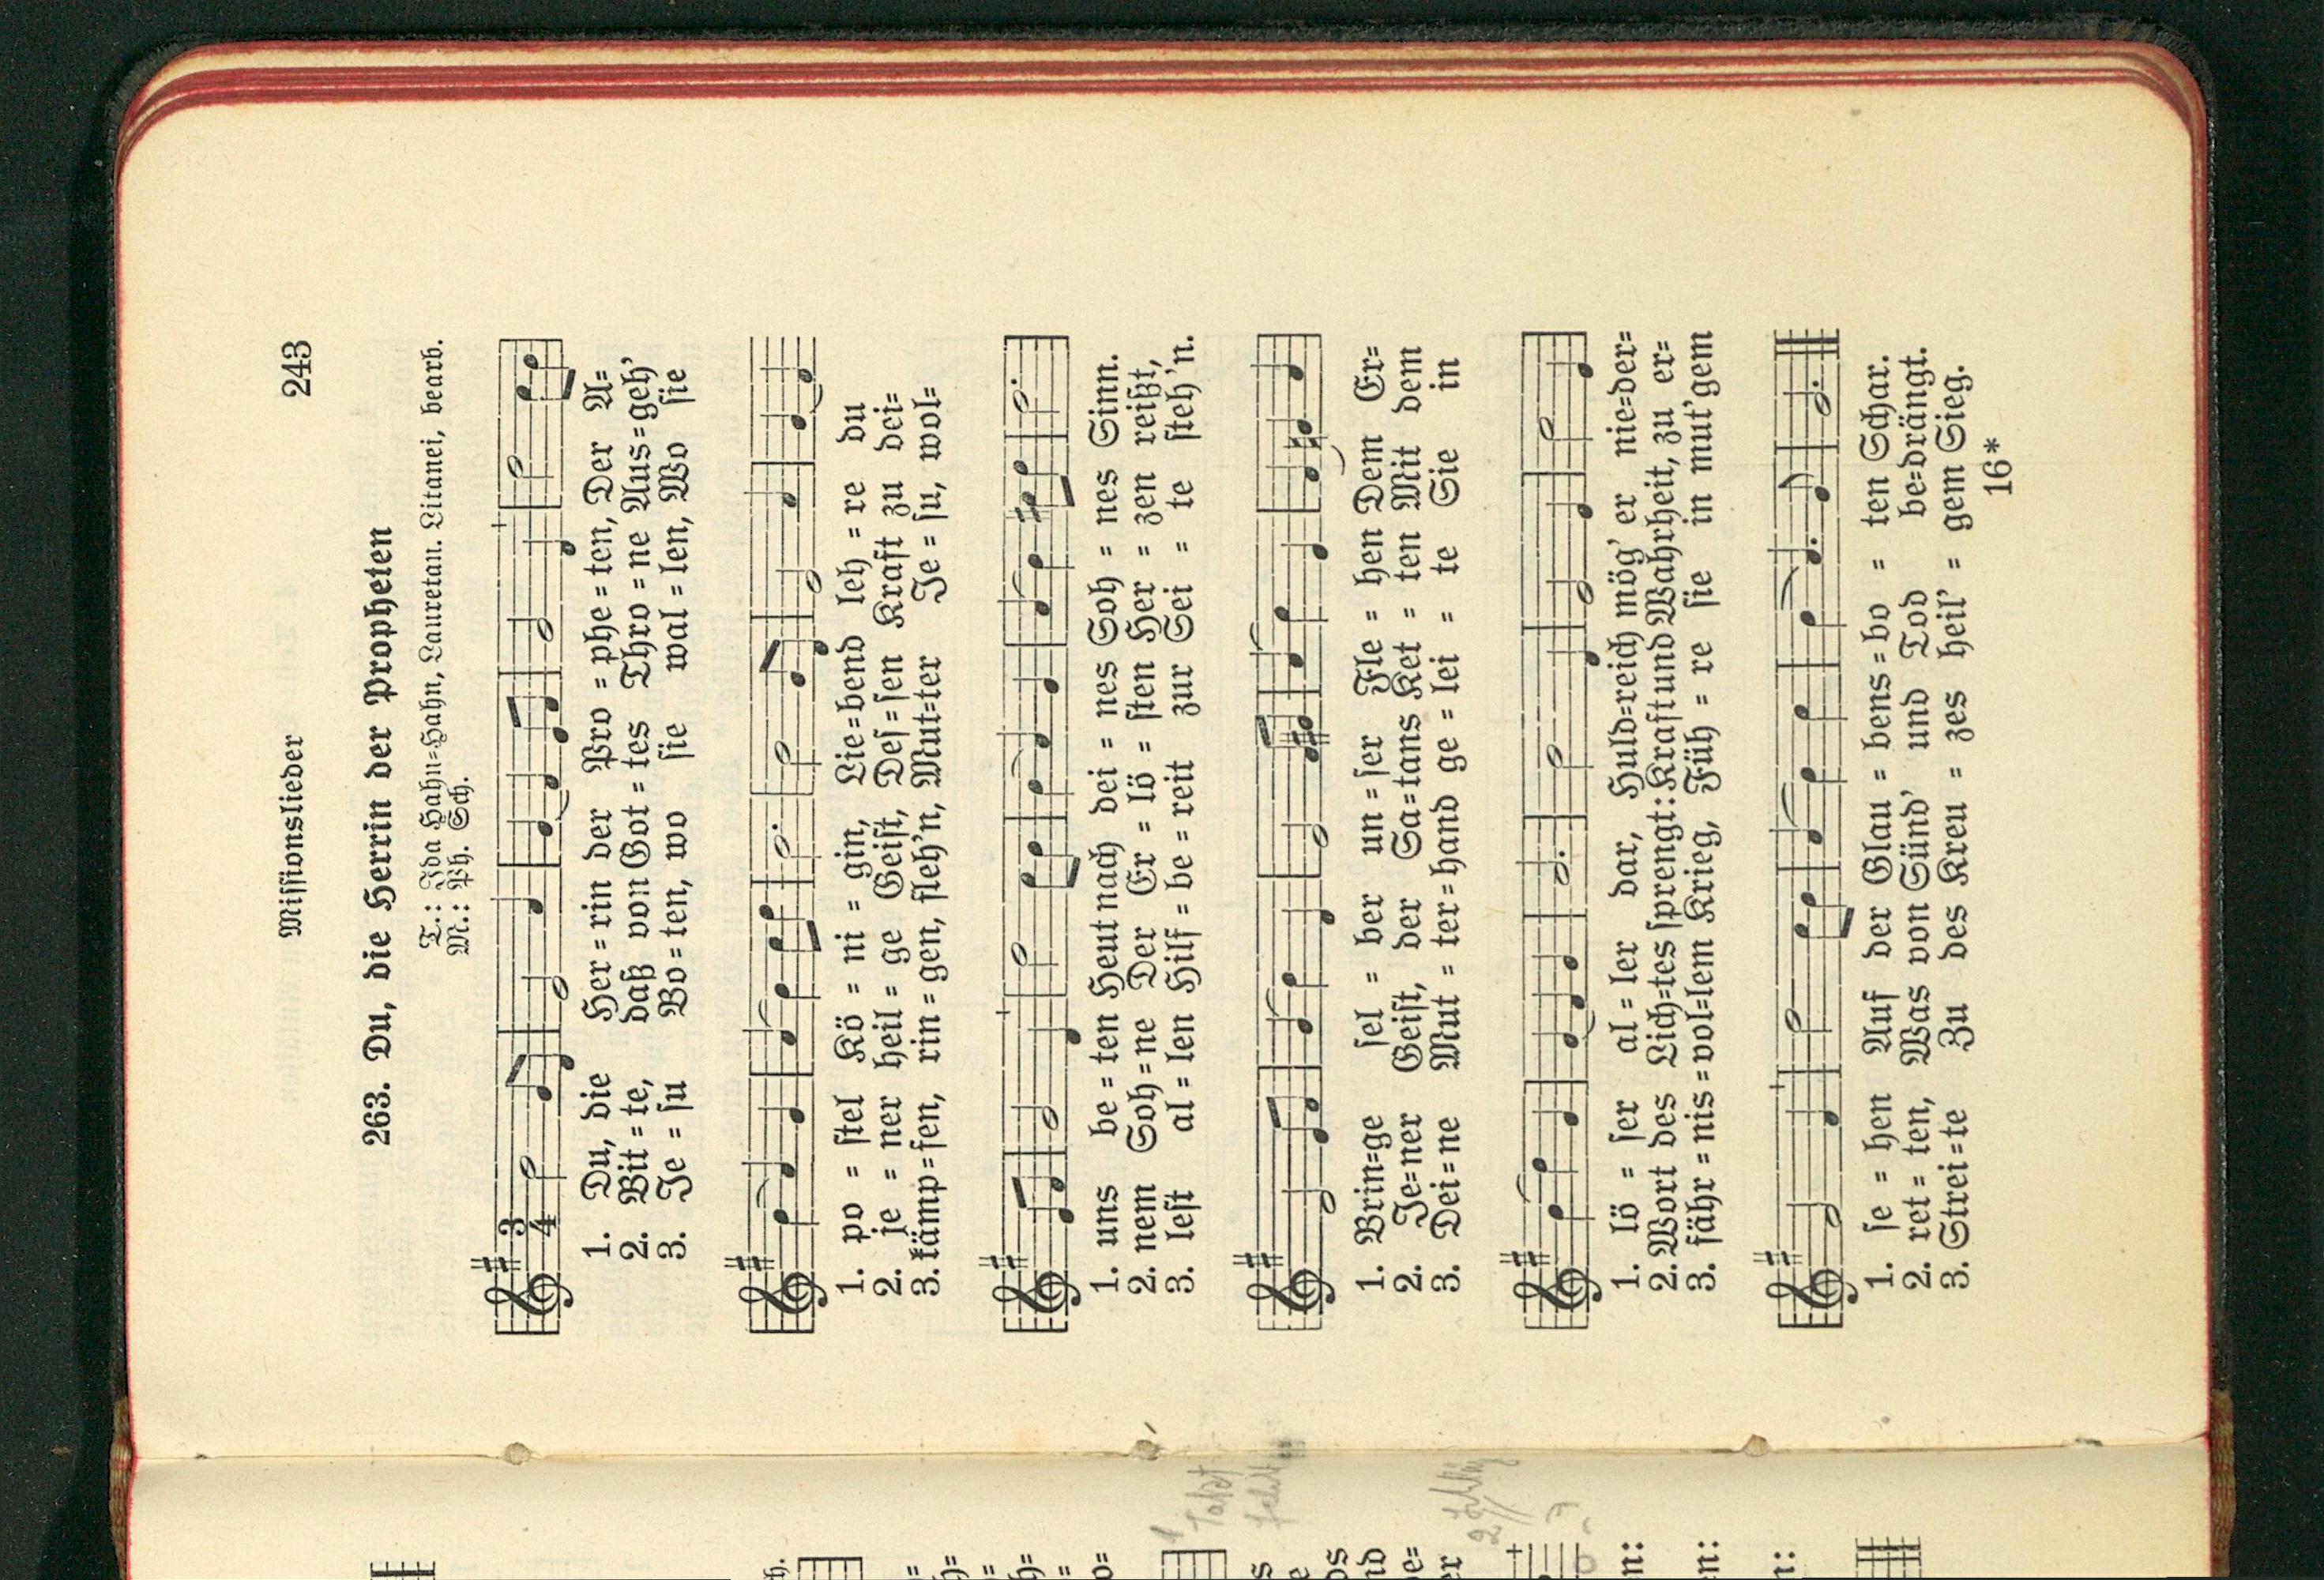 Missionslieder 243
263. Du, die Herrin der Propheten
T.: Ida Hahn=Hahn, Lauretan. Litanei, bearb.
M.: Ph. Sch.
3
4
1. Du, die Her = rin der Pro = phe = ten, Der A=
2. Bit = te, daß von Got = tes Thro = ne Aus = geh'
3. Je = su Bo = ten, wo sie wal = len, Wo sie
1. po = stel Kö = ni = gin, Lie = bend leh = re du
2. je = ner heil = ge Geist, Des = sen Kraft zu dei=
3. kämp = fen, rin = gen, fleh'n, Mut=ter Je = su, wol=
1. uns be = ten Heut nach dei = nes Soh = nes Sinn.
2. nem Soh = ne Der Er = lö = sten Her = zen reißt,
3. lest al = len Hilf = be = reit zur Sei = te steh'n.
1. Brin=ge sel = ber un = ser Fle = hen Dem Er=
2. Je=ner Geist, der Sa=tans Ket = ten Mit dem
3. Dei=ne Mut = ter=hand ge = lei = te Sie in
1. lö = ser al = ler dar, Huld=reich mög' er nie=der=
2. Wort des Lich=tes sprengt: Kraft und Wahrheit, zu er=
3. fähr = nis = vol=lem Krieg, Füh = re sie in mut'gem
1. se = hen Auf der Glau = bens = bo = ten Schar.
2. ret = ten, Was von Sünd' und Tod be=drängt.
3. Strei=te Zu des Kreu = zes heil' = gem Sieg.
16*